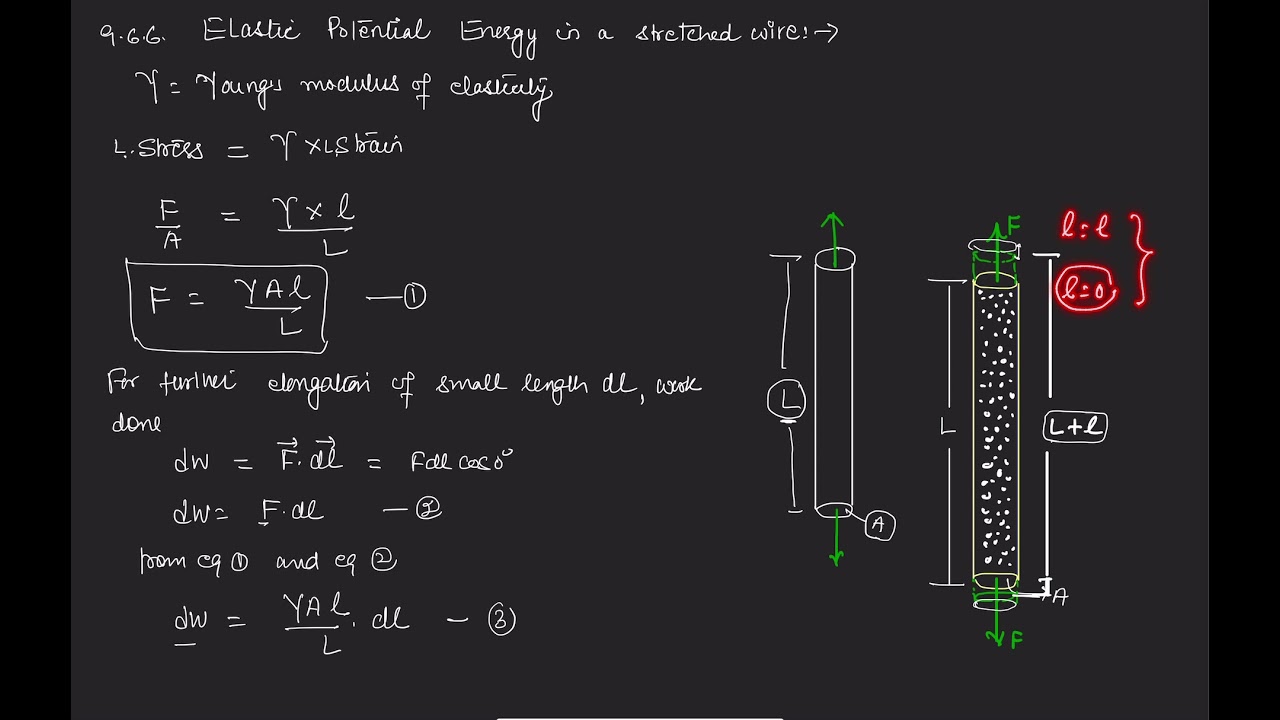 9.6.6. Elastic Potential Energy in a stretched wire:→
Y = Young's modulus of elasticity
L. Stress = Y × L Strain
F/A = Y × l/L
F = YAl/L —①
For further elongation of small length dl, work
done
dW = F⃗.dl⃗ = Fdl cos0°
dW = F.dl —②
from eq ① and eq ②
dW = YAl/L . dl — ③
L
A
F
l=l
l=0
L
L+l
A
F